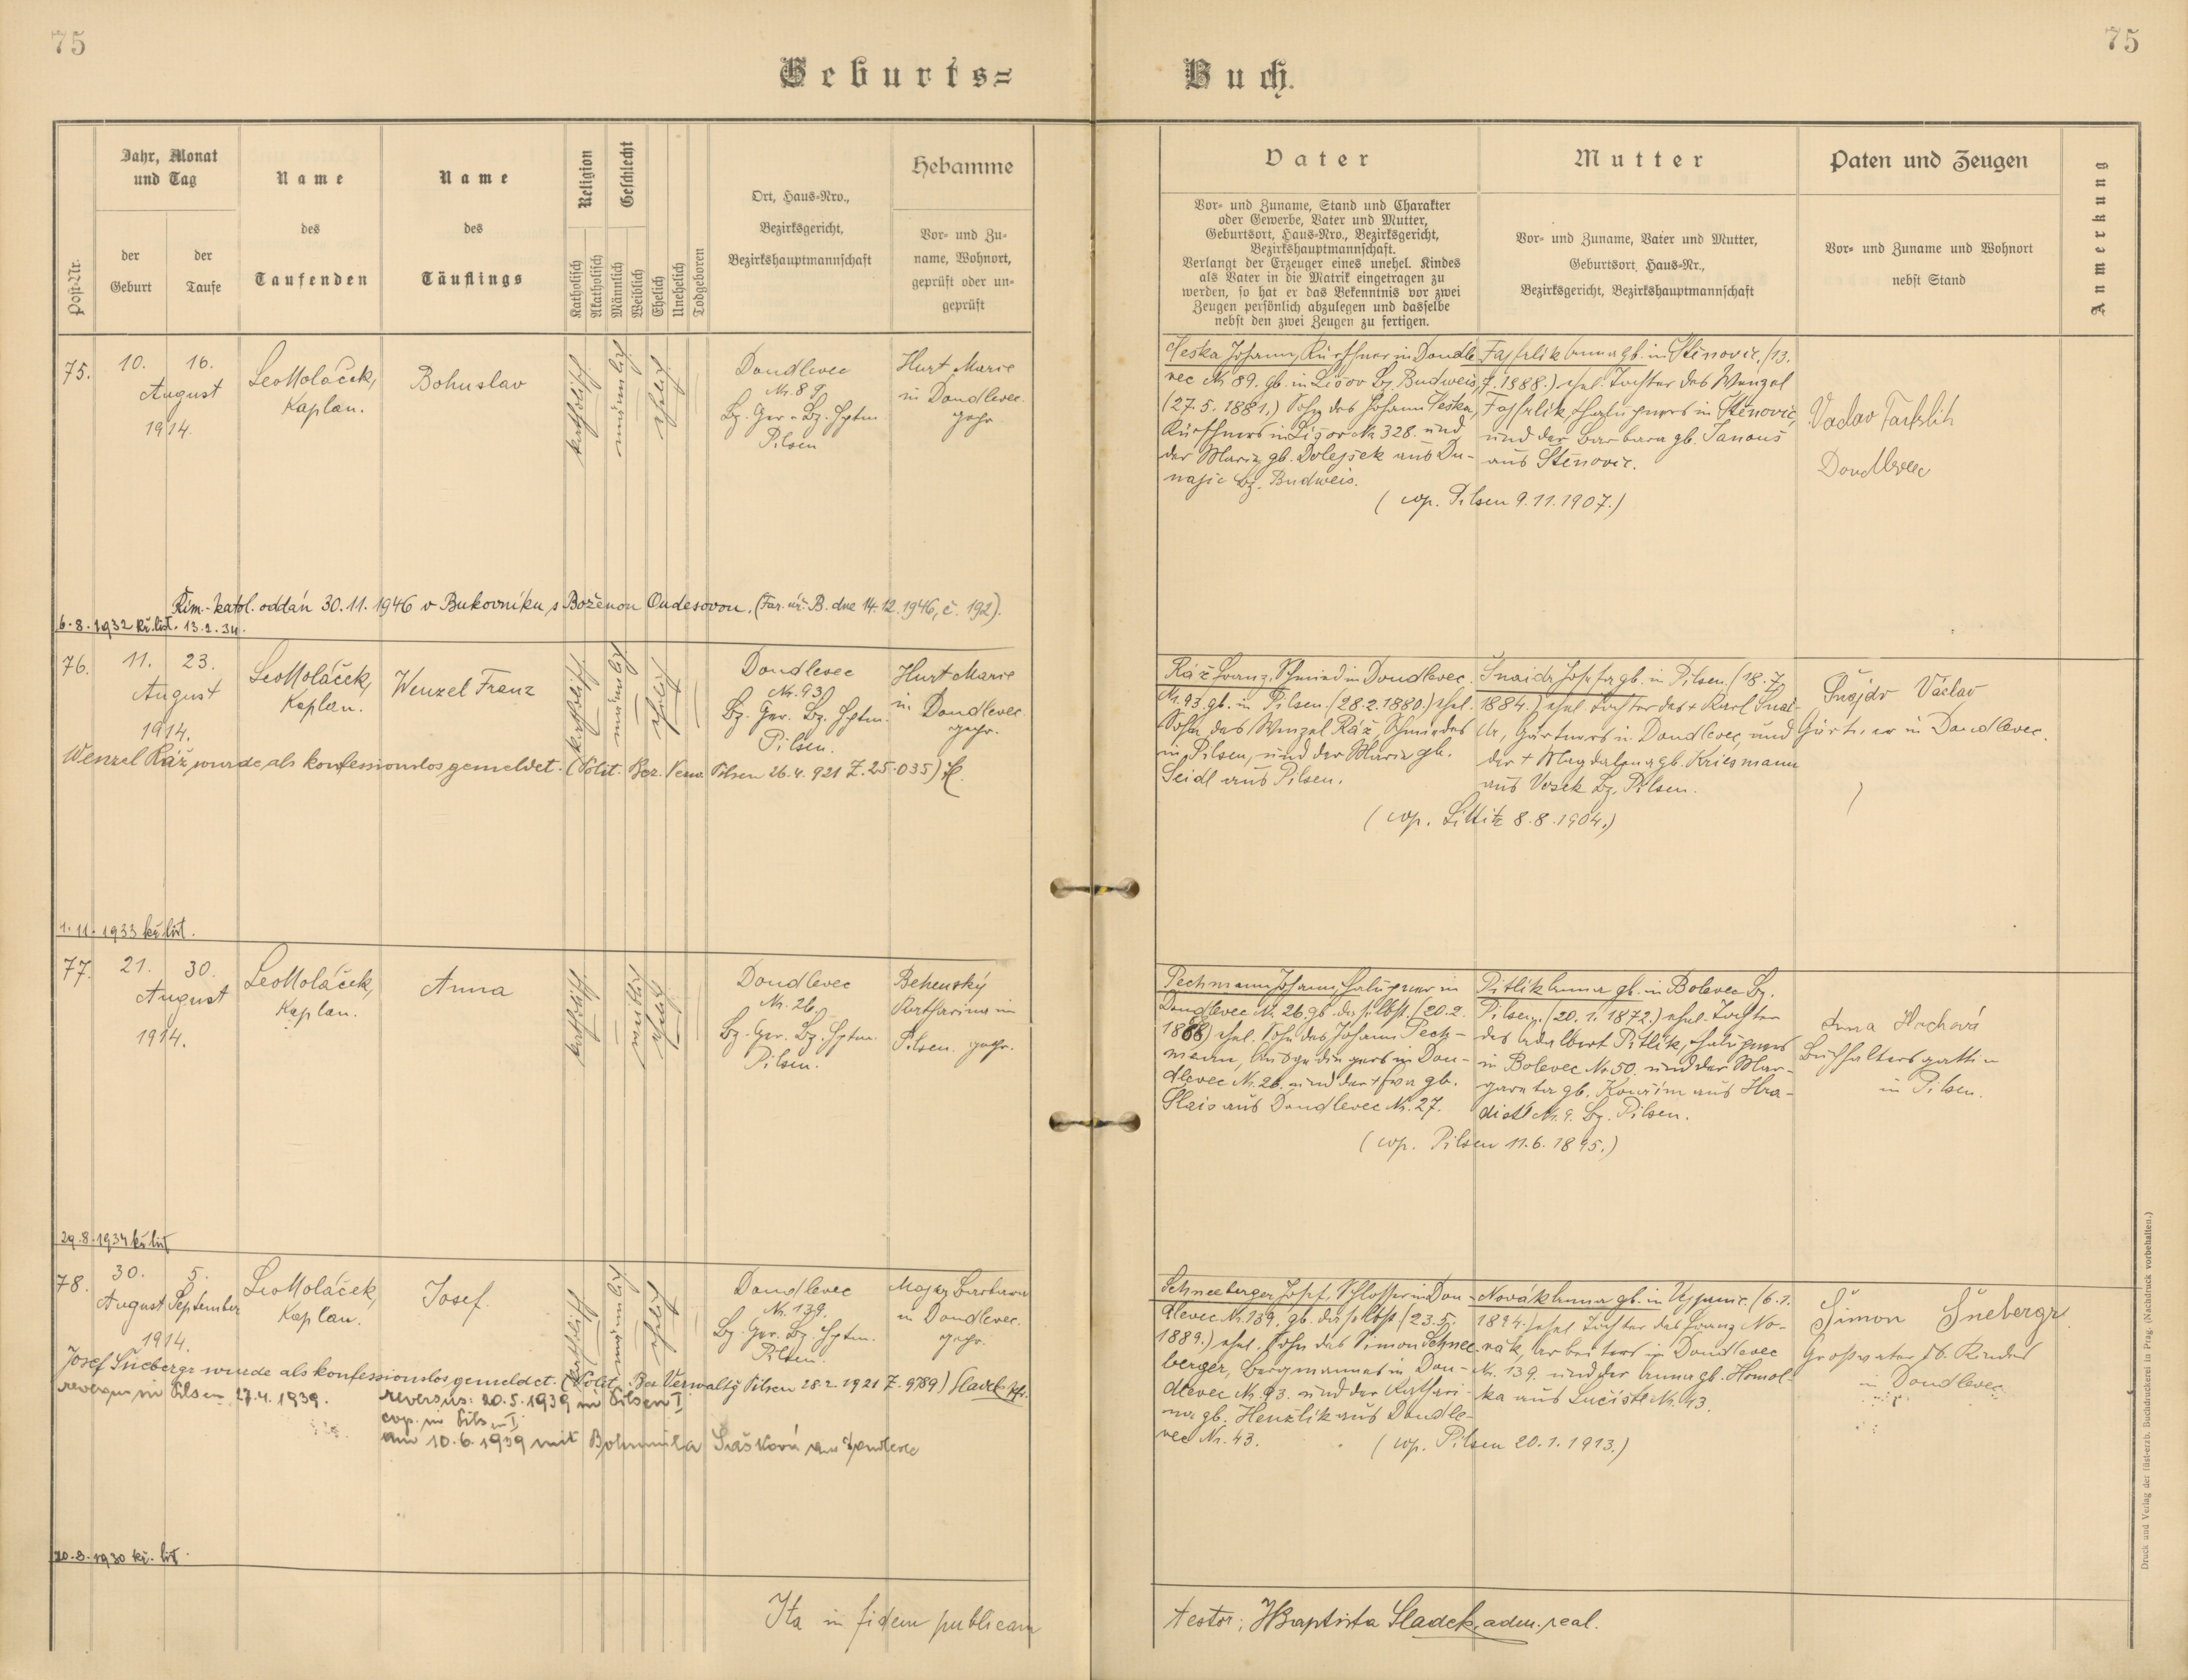 75
75
Geburts=
Buch.
Post-Nr.
Jahr, Monat
und Tag
der
Geburt
der
Taufe
Name
des
Taufenden
Name
des
Täuflings
Religion
Katholisch
Akatholisch
Geschlecht
Männlich
Weiblich
Ehelich
Unehelich
Todgeboren
Ort, Haus-Nro.,
Bezirksgericht,
Bezirkshauptmannschaft
Hebamme
Vor- und Zu-
name, Wohnort,
geprüft oder un-
geprüft
Vater
Vor- und Zuname, Stand und Charakter
oder Gewerbe, Vater und Mutter,
Geburtsort, Haus-Nro., Bezirksgericht,
Bezirkshauptmannschaft.
Verlangt der Erzeuger eines unehel. Kindes
als Vater in die Matrik eingetragen zu
werden, so hat er das Bekenntnis vor zwei
Zeugen persönlich abzulegen und dasselbe
nebst den zwei Zeugen zu fertigen.
Mutter
Vor- und Zuname, Vater und Mutter,
Geburtsort, Haus-Nr.,
Bezirksgericht, Bezirkshauptmannschaft
Paten und Zeugen
Vor- und Zuname und Wohnort
nebst Stand
Anmerkung
75.
10. 16.
August
1914.
Leo Moláček,
Kaplan.
Bohuslav
katholisch
männlich
ehelich
Doudlevec
Nr. 89.
Bz. Ger. Bz. Hptm.
Pilsen
Hurt Marie
in Doudlevec.
gepr.
Peska Johann, Kürschner in Doudle-
vec Nr. 89. gb. in Lišov Bz. Budweis,
(27.5.1881.) Sohn des Johann Peska,
Kürschners in Lišov Nr. 328. und
der Maria gb. Dolejšek aus Du-
najic Bz. Budweis.
Fajfrlik Anna gb. in Štěnovic. (13.
7. 1888.) ehel. Tochter des Wenzel
Fajfrlik, Chalupners in Štěnovic,
und der Barbara gb. Janouš
aus Štěnovic.
(cop. Pilsen 9.11.1907.)
Doudlevec
Řím.-katol. oddán 30.11.1946 v Bukovníku s Boženou Oudesovou. (Far. úř. B. dne 14.12.1946, č. 192).
6.8.1932 kř. list. 13.2.34.
76.
11. 23.
August
1914.
Leo Moláček,
Kaplan.
Wenzel Franz
katholisch
männlich
ehelich
Doudlevec
Nr. 93
Bz. Ger. Bz. Hptm.
Pilsen.
Hurt Marie
in Doudlevec.
gepr.
Ráž Franz, Schmied in Doudlevec
Nr. 93. gb. in Pilsen. (28.2.1880.) ehel.
Sohn des Wenzel Ráž, Schmiedes
in Pilsen, und der Maria gb.
Seidl aus Pilsen.
Šnaidr Josefa gb. in Pilsen. (18.7.
1884.) ehel. Tochter des + Karl Šnai-
dr, Gärtners in Doudlevec, und
der + Magdalena gb. Kriesmann
aus Vosek Bz. Pilsen.
(cop. Littitz 8.8.1904.)
Šnejdr Václav
Gärtner in Doudlevec.
Wenzel Ráž wurde als konfessionslos gemeldet. (Polit. Bez. Verw. Pilsen 26.4.921 Z. 25.035)
1.11.1933 kř. list.
77.
21. 30.
August
1914.
Leo Moláček,
Kaplan.
Anna
katholisch
weiblich
ehelich
Doudlevec
Nr. 26.
Bz. Ger. Bz. Hptm.
Pilsen.
Behenský
Katharina in
Pilsen. gepr.
Pechmann Johann, Chalupner in
Doudlevec Nr. 26. gb. daselbst. (20.2.
1868) ehel. Sohn des Johann Pech-
mann, Ausgedingers in Dou-
dlevec Nr. 26. und der + Eva gb.
Slais aus Doudlevec Nr. 27.
Pitlik Anna gb. in Bolevec Bz.
Pilsen. (20.1.1872.) ehel. Tochter
des Adalbert Pitlik, Chalupners
in Bolevec Nr. 50. und der Mar-
gareta gb. Kouřim aus Hra-
discht Nr. 9. Bz. Pilsen.
(cop. Pilsen 11.6.1895.)
Anna Hachová
Buchhaltersgattin
in Pilsen.
29.8.1934 kř. list
78.
30. 5.
August September
1914.
Leo Moláček,
Kaplan.
Josef.
katholisch
männlich
ehelich
Doudlevec
Nr. 139.
Bz. Ger. Bz. Hptm.
Pilsen.
Majer Barbara
in Doudlevec.
gepr.
Schneeberger Josef, Schlosser in Dou-
dlevec Nr. 139. gb. daselbst (23.5.
1889.) ehel. Sohn des Simon Schnee-
berger, Bergmannes in Dou-
dlevec Nr. 93. und der Kathari-
na gb. Henžlik aus Doudle-
vec Nr. 43.
Novák Anna gb. in (6.1.
1894.) ehel. Tochter des Franz No-
vák, Arbeiters in Doudlevec
Nr. 139. und der Anna gb. Homol-
ka aus Lučiště Nr. 43.
(cop. Pilsen 20.1.1913.)
Šimon Šnebergr
Großvater d. Kindes
in Doudlevec
Josef Šnebergr wurde als konfessionslos gemeldet. (Polit. Bez Verwaltg Pilsen 28.2.1921 Z. 9789) Sladek
reversus in Pilsen 27.4.1939.
reversus: 20.5.1939 in Pilsen I
cop. in Pilsen I
am 10.6.1939 mit Bohumila Sašková
20.8.1930 kř. list
Ita in fidem publicam
testor: J Baptista Sladek, adm. real.
Druck und Verlag der fürst-erzb. Buchdruckerei in Prag. (Nachdruck vorbehalten.)